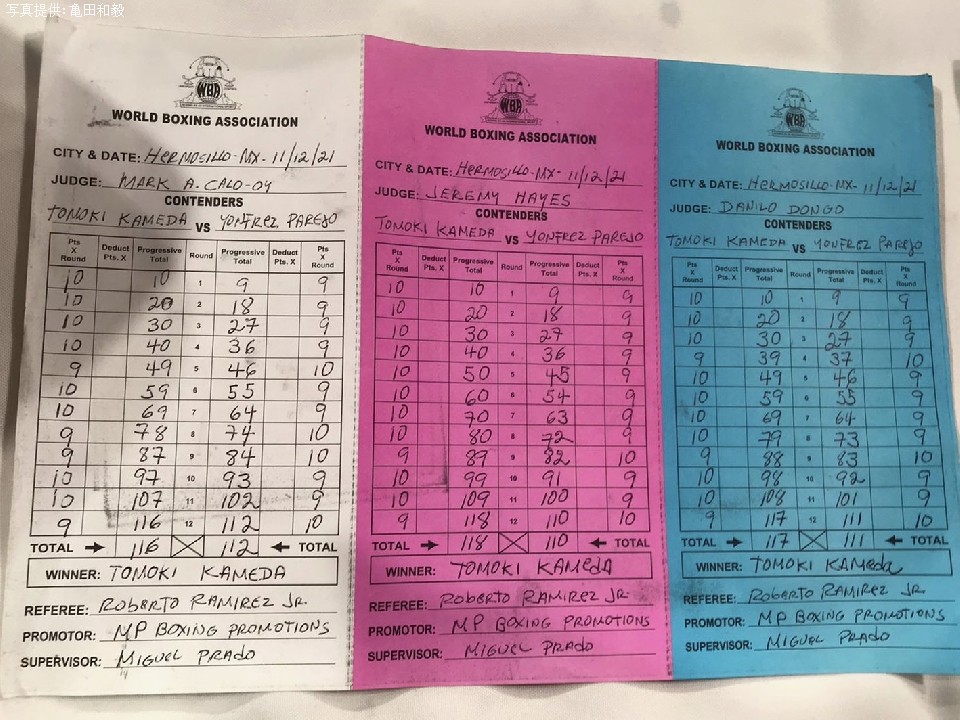 写真提供:亀田和毅
WBA
WORLD BOXING ASSOCIATION
CITY & DATE: HERMOSILLO-MX-11/12/21
JUDGE: MARK A. CALO-OY
CONTENDERS
TOMOKI KAMEDA VS YONFREZ PAREJO
Pts X Round Deduct Pts. X Progressive Total Round Progressive Total Deduct Pts. X Pts X Round
10 10 1 9 9
10 20 2 18 9
10 30 3 27 9
10 40 4 36 9
9 49 5 46 10
10 59 6 55 9
10 69 7 64 9
9 78 8 74 10
9 87 9 84 10
10 97 10 93 9
10 107 11 102 9
9 116 12 112 10
TOTAL 116 112 TOTAL
WINNER: TOMOKI KAMEDA
REFEREE: ROBERTO RAMIREZ JR.
PROMOTOR: MP BOXING PROMOTIONS
SUPERVISOR: MIGUEL PRADO
WBA
WORLD BOXING ASSOCIATION
CITY & DATE: HERMOSILLO-MX-11/12/21
JUDGE: JEREMY HAYES
CONTENDERS
TOMOKI KAMEDA VS YONFREZ PAREJO
Pts X Round Deduct Pts. X Progressive Total Round Progressive Total Deduct Pts. X Pts X Round
10 10 1 9 9
10 20 2 18 9
10 30 3 27 9
10 40 4 36 9
10 50 5 45 9
10 60 6 54 9
10 70 7 63 9
10 80 8 72 9
9 89 9 82 10
10 99 10 91 9
10 109 11 100 9
9 118 12 110 10
TOTAL 118 110 TOTAL
WINNER: TOMOKI KAMEDA
REFEREE: ROBERTO RAMIREZ JR.
PROMOTOR: MP BOXING PROMOTIONS
SUPERVISOR: MIGUEL PRADO
WBA
WORLD BOXING ASSOCIATION
CITY & DATE: HERMOSILLO-MX-11/12/21
JUDGE: DANILO DONGO
CONTENDERS
TOMOKI KAMEDA VS YONFREZ PAREJO
Pts X Round Deduct Pts. X Progressive Total Round Progressive Total Deduct Pts. X Pts X Round
10 10 1 9 9
10 20 2 18 9
10 30 3 27 9
9 39 4 37 10
10 49 5 46 9
10 59 6 55 9
10 69 7 64 9
10 79 8 73 9
9 88 9 83 10
10 98 10 92 9
10 108 11 101 9
9 117 12 111 10
TOTAL 117 111 TOTAL
WINNER: TOMOKI KAMEDA
REFEREE: ROBERTO RAMIREZ JR.
PROMOTOR: MP BOXING PROMOTIONS
SUPERVISOR: MIGUEL PRADO